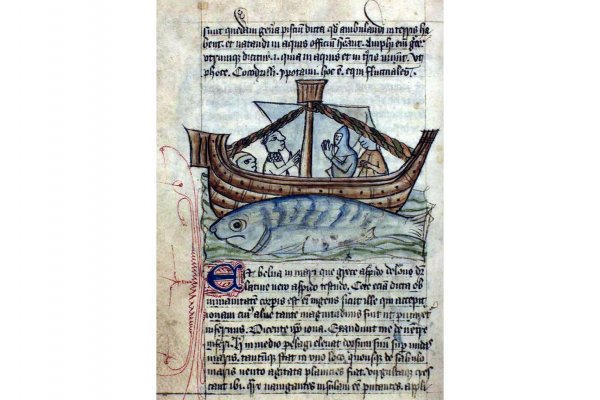 sunt quedam gen̄a pisciū dicta qđ ambulandi in terris ha
bent. et natandi in aquis officiū hēant. Amphi em̄ gre
utrumque dicitur .i. quia in aquis et in t̄ris uiuūt. ut
phoce. Cocodrilli. ypotami. hoc ē. equi fluctuales.
Est belua in mari que grece aspido delone dr̄
latine uero aspido testudo. Cete etiā dicta ob
inmanitatem corꝑis est en̄ ingens sicut ille qui accepit
ionam cuiꝰ aluus tante magnitudinis fuit ut putaret̄
infernus. Dicente ip̄o iona. Exaudiuit me de uentre
inferi. in medio pelagi eleuat dorsum suū sup̄ undas
maris. tantūque stat in uno loco. quousque de sabulo
maris uento agitata planicies fiat. uirgultaque cres
cant ibi. nauigantes insulam eē putantes. appli